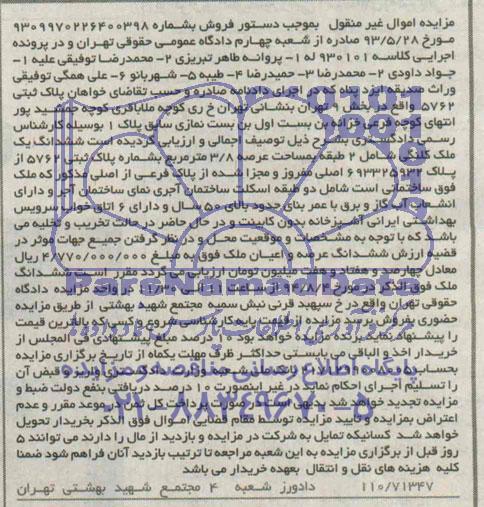 مزایده اموال غیر منقول بموجب دستور فروش بشماره ۹۳۰۹۹۷۰۲۲۶۴۰۰۳۹۸
مورخ ۹۳/۵/۲۸ صادره از شعبه چهارم دادگاه عمومی حقوقی تهران و در پرونده
اجرایی کلاسه ۹۳۰۱۰۱ له ۱- پروانه طاهر تبریزی ۲- محمدرضا توفیقی علیه ۱-
جواد داودی ۲- محمدرضا ۳- حمیدرضا ۴- طیبه ۵- شهربانو ۶- علی همگی توفیقی
وراث صدیقه ایزد پناه که در اجرای دادنامه صادره و حسب تقاضای خواهان پلاک ثبتی
۵۷۶۲ واقع در بخش ۹ تهران بنشانی تهران خ ری کوچه ملاباقری کوچه پور
انتهای کوچه فرعی خزانه بن بست اول بن بست نمازی سابق پلاک ۱ بوسیله کارشناس
رسمی دادگستری بشرح ذیل توصیف اجمالی و ارزیابی گردیده است ششدانگ یک
ملک کلنگی شامل ۲ طبقه بمساحت عرصه ۳/۸ مترمربع بشماره پلاک ثبتی ۵۷۶۲ از
پلاک اصلی مفروز و مجزا شده از پلاک فرعی از اصلی مذکور که ملک
فوق ساختمانی است شامل دو طبقه اسکلت ساختمان آجری نمای ساختمان آجر و دارای
انشعاب آب گاز و برق با عمر بنای حدود بالای ۵۰ سال و دارای ۶ اتاق خواب سرویس
بهداشتی ایرانی آشپزخانه بدون کابینت و در حال حاضر در حالت تخریب و تخلیه می
باشد که با توجه به مشخصات و موقعیت محل و در نظر گرفتن جمیع جهات موثر در
قضیه ارزش ششدانگ عرصه و اعیان ملک فوق به مبلغ ۴/۷۷۰/۰۰۰/۰۰۰ ریال
معادل چهارصد و هفتاد و هفت میلیون تومان ارزیابی می گردد مقرر است ششدانگ
ملک فوق الذکر در مورخ ۹۴/۸/۴ از ساعت ۱۱ الی ۱۱/۳۰ در واحد مزایده دادگاه
حقوقی تهران واقع در خ سپهبد قرنی نبش سمیه مجتمع شهید بهشتی از طریق مزایده
حضوری بفروش برسد مزایده از قیمت پایه کارشناسی شروع و کسی که بالاترین قیمت
را پیشنهاد نماید برنده مزایده خواهد بود ۱۰ درصد مبلغ پیشنهادی فی المجلس از
خریدار اخذ و الباقی می بایستی حداکثر ظرف مهلت یکماه از تاریخ برگزاری مزایده
بحساب دادگستری واریز و قبض آن
را تسلیم اجرای احکام نماید در غیر اینصورت ۱۰ درصد دریافتی بنفع دولت ضبط و
مزایده تجدید خواهد شد بدیهی است در صورت پرداخت کل ثمن در موعد مقرر و عدم
اعتراض بمزایده و تایید مزایده توسط مقام قضایی اموال فوق الذکر بخریدار تحویل
خواهد شد کسانیکه تمایل به شرکت در مزایده و بازدید از مال را دارند می توانند ۵
روز قبل از برگزاری مزایده به این شعبه مراجعه تا ترتیب بازدید آنان فراهم شود ضمنا
کلیه هزینه های نقل و انتقال بعهده خریدار می باشد
۱۱۰/۷۱۳۴۷ دادورز شعبه ۴ مجتمع شهید بهشتی تهران
پایگاه اطلاع رسانی مناقصه مزایده
۰۲۱-۸۸۳۴۹۶۷۰-۵